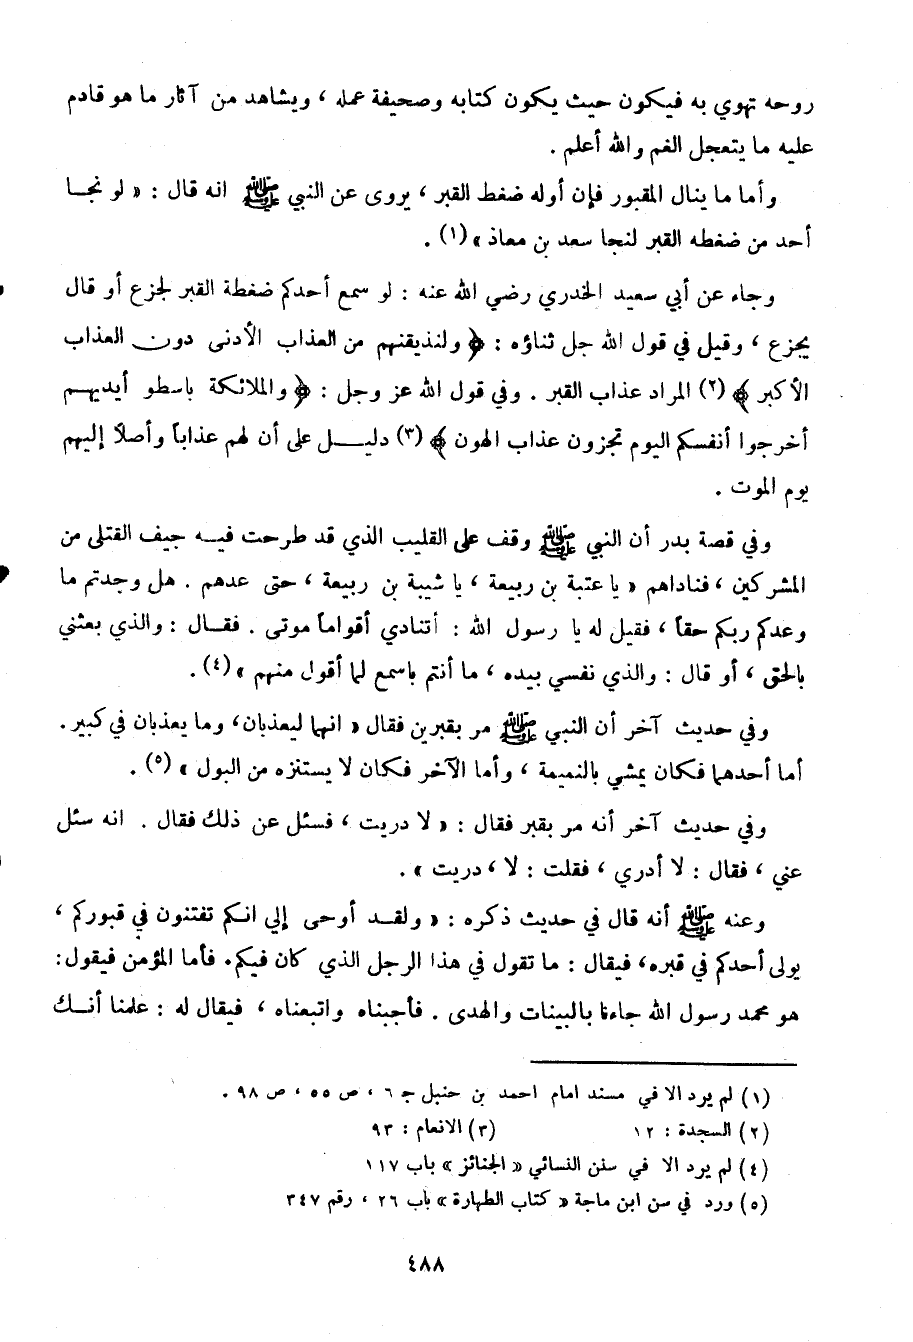 روحه تهوي به فيكون حيث يكون كتابه وصحيفة عمله ، ويشاهد من آثار ما هو قادم
عليه ما يتعجل الغم والله أعلم .
وأما ما ينال المقبور فإن أوله ضغط القبر ، يروى عن النبي ﷺ انه قال : « لو نجا
أحد من ضغطه القبر لنجا سعد بن معاذ » (١) .
وجاء عن أبي سعيد الخدري رضي الله عنه : لو سمع أحدكم ضغطة القبر لجزع أو قال
يجزع ، وقيل في قول الله جل ثناؤه : ﴿ ولنذيقنهم من العذاب الأدنى دون العذاب
الأكبر ﴾ (٢) المراد عذاب القبر . وفي قول الله عز وجل : ﴿ والملائكة باسطو أيديهم
أخرجوا أنفسكم اليوم تجزون عذاب الهون ﴾ (٣) دليل على أن لهم عذاباً وأصلاً إليهم
يوم الموت .
وفي قصة بدر أن النبي ﷺ وقف على القليب الذي قد طرحت فيه جيف القتلى من
المشركين ، فناداهم « يا عتبة بن ربيعة ، يا شيبة بن ربيعة ، حتى عدهم . هل وجدتم ما
وعدكم ربكم حقاً ، فقيل له يا رسول الله : أتنادي أقواماً موتى . فقال : والذي بعثني
بالحق ، أو قال : والذي نفسي بيده ، ما أنتم باسمع لما أقول منهم » (٤) .
وفي حديث آخر أن النبي ﷺ مر بقبرين فقال « انهما ليعذبان، وما يعذبان في كبير .
أما أحدهما فكان يمشي بالنميمة ، وأما الآخر فكان لا يستنزه من البول » (٥) .
وفي حديث آخر أنه مر بقبر فقال : « لا دريت ، فسئل عن ذلك فقال . انه سئل
عني ، فقال : لا أدري ، فقلت : لا ، دريت » .
وعنه ﷺ أنه قال في حديث ذكره : « ولقد أوحى إلي انكم تفتنون في قبوركم ،
يولى أحدكم في قبره، فيقال : ما تقول في هذا الرجل الذي كان فيكم. فأما المؤمن فيقول:
هو محمد رسول الله جاءنا بالبينات والهدى . فأجبناه واتبعناه ، فيقال له : علمنا أنك
(١) لم يرد الا في مسند امام احمد بن حنبل جـ ٦ ، ص ٥٥ ، ص ٩٨ .
(٢) السجدة : ١٢ (٣) الانعام : ٩٣
(٤) لم يرد الا في سنن النسائي « الجنائز » باب ١١٧
(٥) ورد في سن ابن ماجة « كتاب الطهارة » باب ٢٦ ، رقم ٣٤٧
٤٨٨